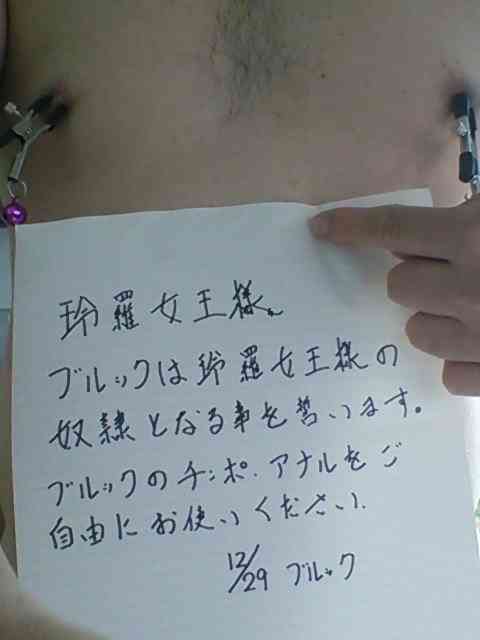 玲羅女王様。
ブルックは玲羅女王様の
奴隷となる事を誓います。
ブルックのチンポ.アナルをご
自由にお使いください.
12/29 ブルック